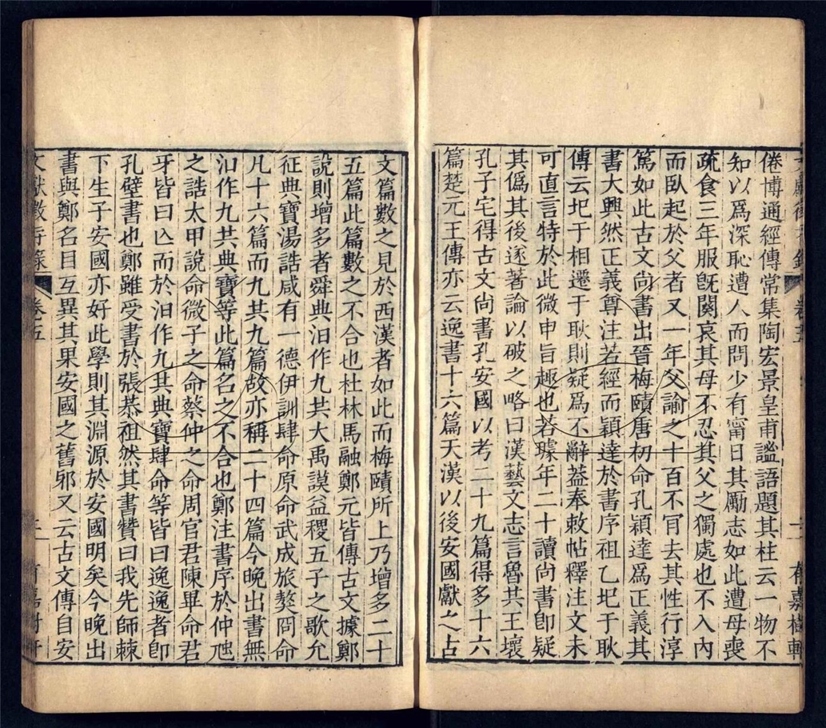 文獻徵存錄 卷五 有嘉樹軒
倦博通經傳常集陶宏景皇甫謐語題其柱云一物不
知以爲深恥遭人而問少有甯日其勵志如此遭母喪
疏食三年服旣闋哀其母不忍其父之獨處也不入內
而臥起於父者又一年父諭之十百不肎去其性行淳
篤如此古文尚書出晉梅賾唐初命孔穎達爲正義其
書大興然正義尊注若經而穎達於書序祖乙圮于耿
傳云圮于相遷于耿則疑爲不辭葢奉敕帖釋注文未
可直言特於此微申旨趣也若璩年二十讀尚書卽疑
其僞其後遂著論以破之略曰漢藝文志言魯共王壞
孔子宅得古文尚書孔安國以考二十九篇得多十六
篇楚元王傳亦云逸書十六篇天漢以後安國獻之古
文篇數之見於西漢者如此而梅賾所上乃增多二十
五篇此篇數之不合也杜林馬融鄭元皆傳古文據鄭
說則增多者舜典汩作九共大禹謨益稷五子之歌允
征典寶湯誥咸有一德伊訓肆命原命武成旅獒冏命
凡十六篇而九共九篇故亦稱二十四篇今晚出書無
汩作九共典寶等此篇名之不合也鄭注書序於仲虺
之誥太甲說命微子之命蔡仲之命周官君陳畢命君
牙皆曰亾而於汩作九共典寶肆命等皆曰逸逸者卽
孔壁書也鄭雖受書於張恭祖然其書贊曰我先師棘
下生子安國亦好此學則其淵源於安國明矣今晚出
書與鄭名目互異其果安國之舊邪又云古文傳自安
文獻徵存錄 卷五 三 有嘉樹軒